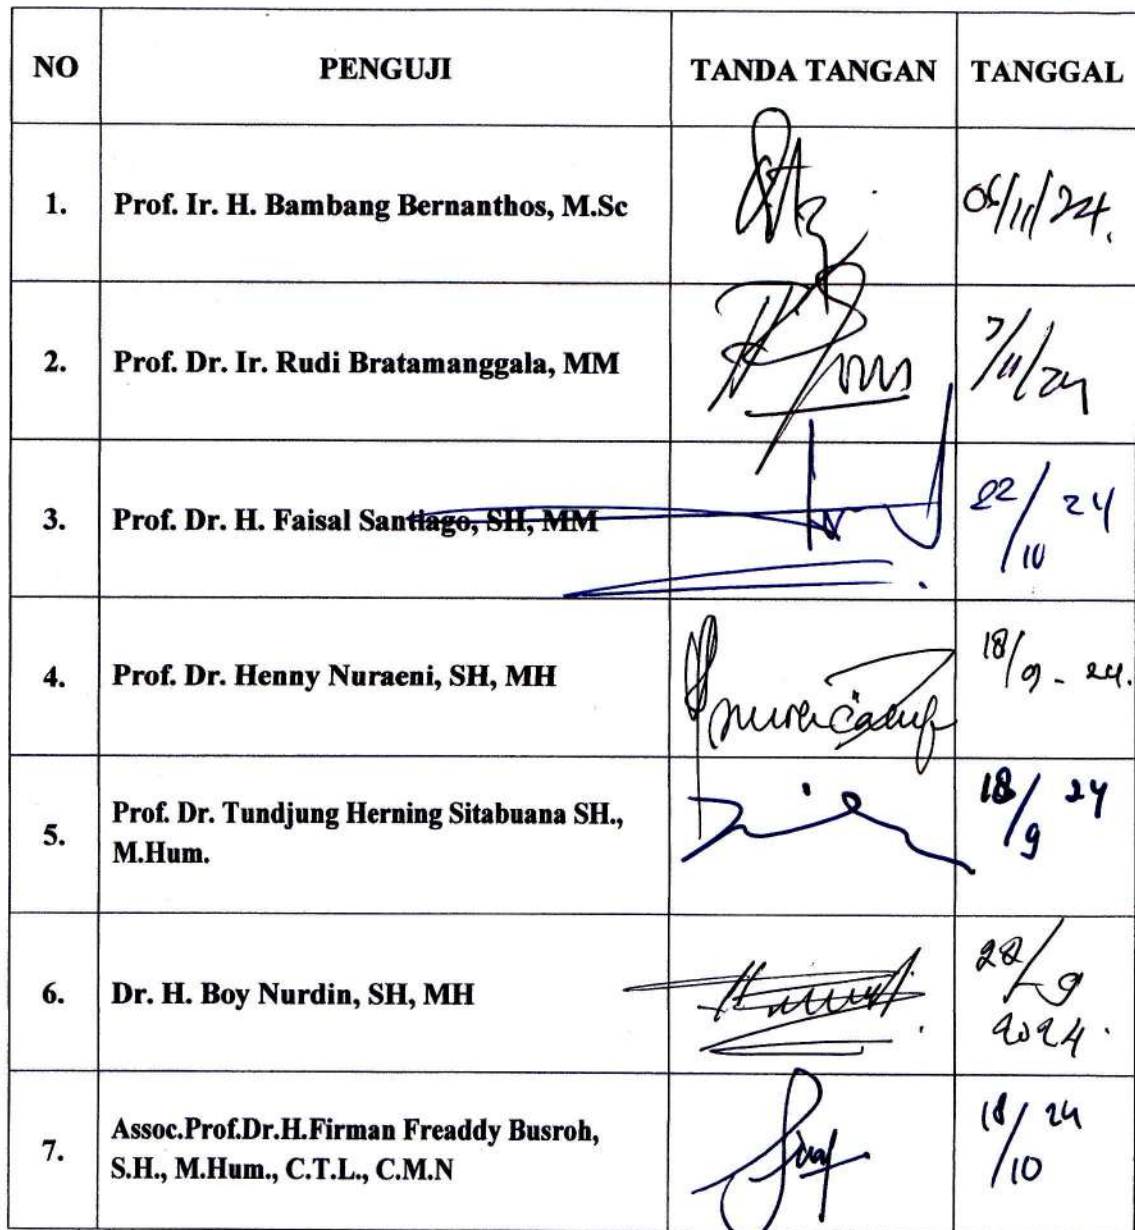 NO PENGUJI TANDA TANGAN TANGGAL
1. Prof. Ir. H. Bambang Bernanthos, M.Sc /11/24.
2. Prof. Dr. Ir. Rudi Bratamanggala, MM 7/11/24
3. Prof. Dr. H. Faisal Santiago, SH, MM 22/10 24
4. Prof. Dr. Henny Nuraeni, SH, MH 18/9 - 24.
5. Prof. Dr. Tundjung Herning Sitabuana SH., 18/9 24
M.Hum.
6. Dr. H. Boy Nurdin, SH, MH /9
2024.
7. Assoc.Prof.Dr.H.Firman Freaddy Busroh, 18/10 24
S.H., M.Hum., C.T.L., C.M.N